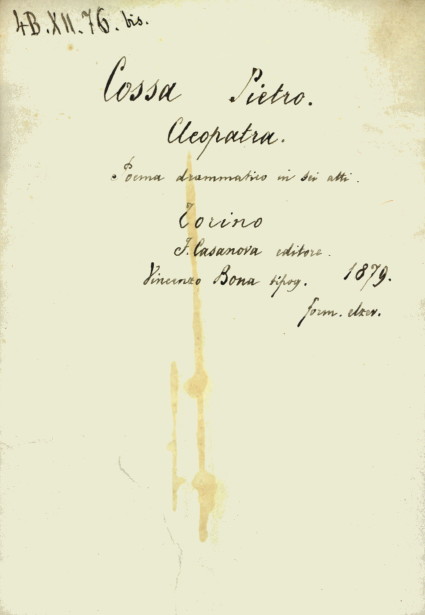 4B.XII.76.bis.
Cossa Pietro.
Cleopatra.
Poema drammatico in sei atti.
Torino
F. Casanova editore.
Vincenzo Bona tipog. 1879.
form. elzev.